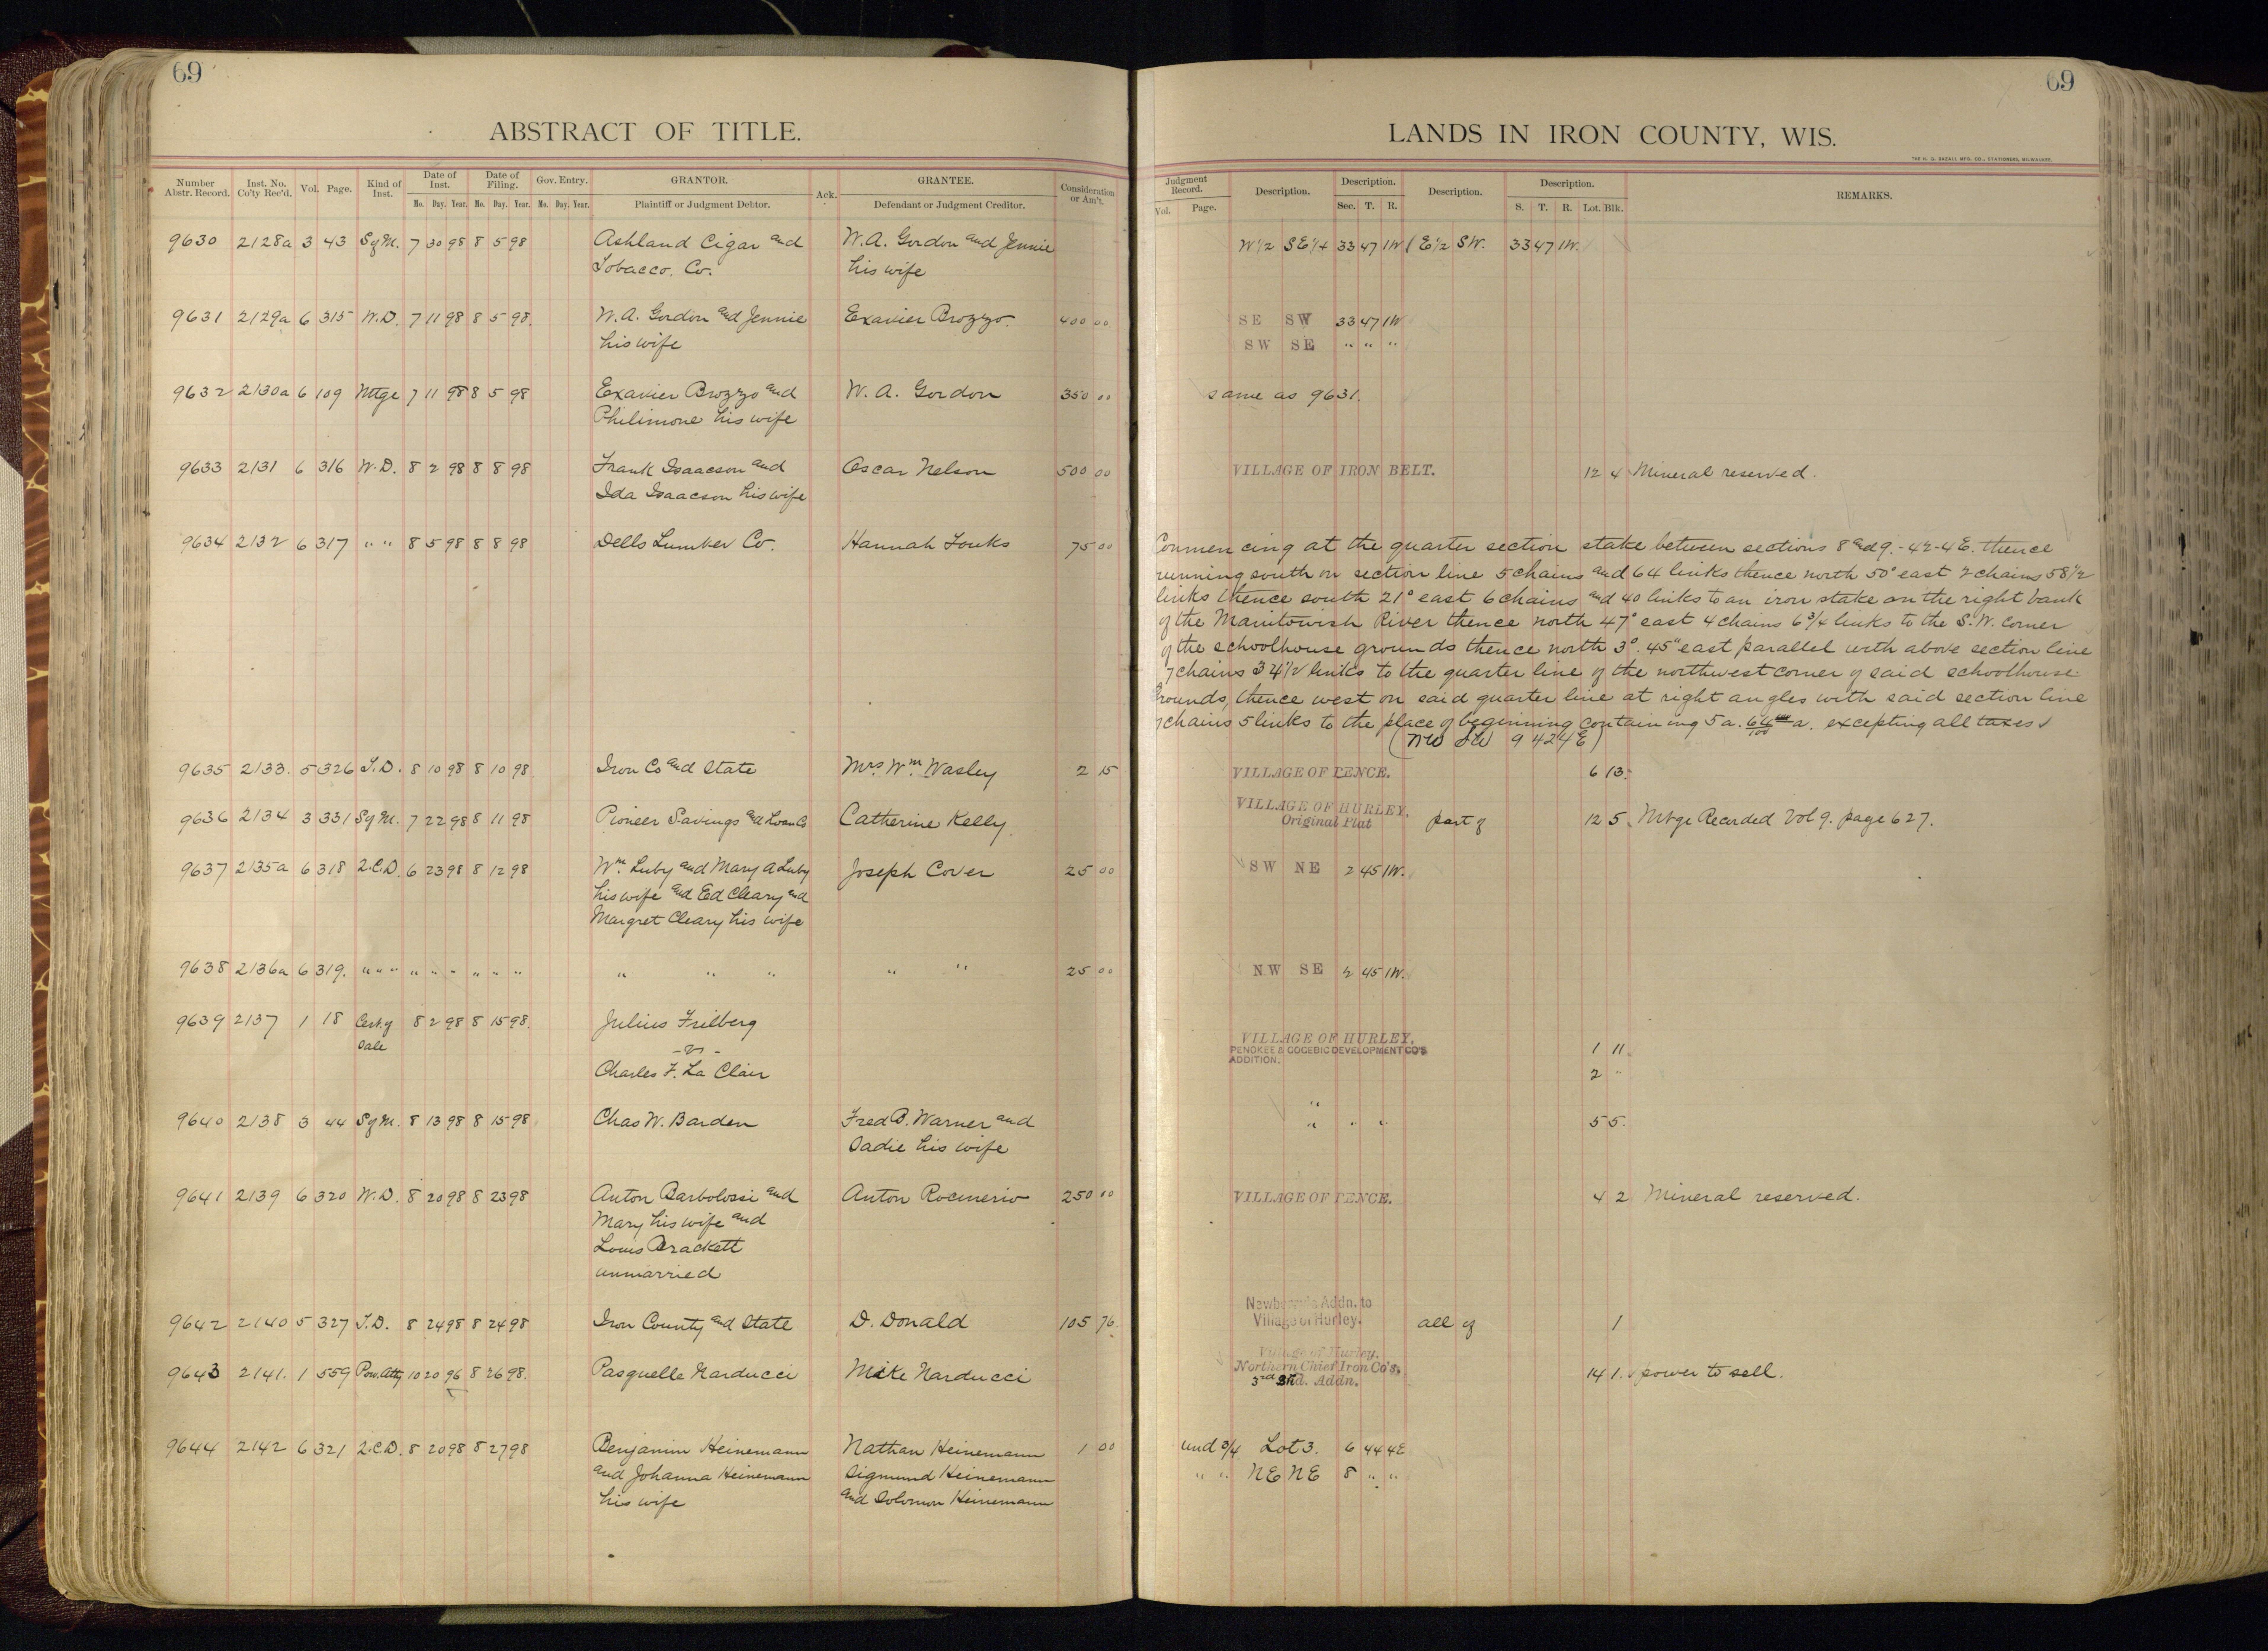 69
ABSTRACT OF TITLE.
Number Abstr. Record. Inst. No. Co'ty Rec'd. Vol. Page. Kind of Inst. Date of Inst. Mo. Day. Year. Date of Filing. Mo. Day. Year. Gov. Entry. Mo. Day. Year. GRANTOR. Plaintiff or Judgment Debtor. Ack. GRANTEE. Defendant or Judgment Creditor. Consideration or Am't.
9630 2128a 3 43 Sg M. 7 30 98 8 5 98 Ashland Cigar and W. A. Gordon and Jennie
Tobacco. Co. his wife
9631 2129a 6 315 W.D. 7 11 98 8 5 98. W. A. Gordon and Jennie Exavier Brozzo. 400 00
his wife
9632 2130a 6 109 Mtge 7 11 98 8 5 98 Exavier Brozzo and W. A. Gordon 350 00
Philimone his wife
9633 2131 6 316 W.D. 8 2 98 8 8 98 Frank Isaacson and Oscar Nelson 500 00
Ida Isaacson his wife
9634 2132 6 317 " " 8 5 98 8 8 98 Dells Lumber Co. Hannah Louks 75 00
9635 2133. 5 326 T.D. 8 10 98 8 10 98. Iron Co and State Mrs. Wm. Wasley 2 15
9636 2134 3 331 Sg M. 7 22 98 8 11 98 Pioneer Savings and Loan Co Catherine Kelly.
9637 2135a 6 318 Q.C.D. 6 23 98 8 12 98 Wm. Luby and Mary A Luby Joseph Cover 25 00
his wife and Ed Cleary and
Margret Cleary his wife
9638 2136a 6 319. " " " " " " " " " " " " " " 25 00
9639 2137 1 18 Cert. of 8 2 98 8 15 98. Julius Frilberg
Sale - vs -
Charles F. La Clair
9640 2138 3 44 Sg M. 8 13 98 8 15 98 Chas W. Barden Fred B. Warner and
Sadie his wife
9641 2139 6 320 W.D. 8 20 98 8 23 98 Anton Barbolossi and Anton Rocinerio 250 00
Mary his wife and
Louis Brackett
unmarried
9642 2140 5 327 T.D. 8 24 98 8 24 98 Iron County and State D. Donald 105 76.
9643 2141. 1 559 Pow. Atty 10 20 96 8 26 98. Pasquelle Narducci Mike Narducci
9644 2142 6 321 Q.C.D. 8 20 98 8 27 98 Benjamin Heinemann Nathan Heinemann 1 00
and Johanna Heinemann Sigmund Heinemann
his wife and Solomon Heinemann
69
LANDS IN IRON COUNTY, WIS.
THE H. G. RAZALL MFG. CO., STATIONERS, MILWAUKEE.
Judgment Record. Vol. Page. Description. Description. Sec. T. R. Description. Description. S. T. R. Lot. Blk. REMARKS.
W 1/2 SE 1/4 33 47 1W (E 1/2 SW. 33 47 1W.
SE SW 33 47 1W
SW SE " " "
same as 9631.
VILLAGE OF IRON BELT. 12 4 Mineral reserved.
Commencing at the quarter section stake between sections 8 and 9. - 42 - 4 E. thence
running south on section line 5 chains and 64 links thence north 50° east 2 chains 58 1/2
links thence south 21° east 6 chains and 40 links to an iron stake on the right bank
of the Manitowish River thence north 47° east 4 chains 6 3/4 links to the S.W. corner
of the schoolhouse grounds thence north 3°. 45" east parallel with above section line
7 chains 34 1/2 links to the quarter line of the northwest corner of said schoolhouse
Grounds, thence west on said quarter line at right angles with said section line
7 chains 5 links to the place of beginning containing 5 a. 64/100 a. excepting all taxes
(NW SW 9 42 4 E)
VILLAGE OF PENCE. 6 13.
VILLAGE OF HURLEY,
Original Plat part of 12 5. Mtge Recorded Vol 9. page 627.
SW NE 2 45 1W.
NW SE 2 45 1W.
VILLAGE OF HURLEY,
PENOKEE & GOGEBIC DEVELOPMENT CO'S 1 11.
ADDITION.
2 "
"
" " " 5 5.
VILLAGE OF PENCE. 4 2 Mineral reserved.
Newberry's Addn. to
Village of Hurley. all of 1
Village of Hurley.
Northern Chief Iron Co's, 14 1. power to sell.
3rd Addn.
und 3/4 Lot 3. 6 44 4E
" " NE NE 8 " "